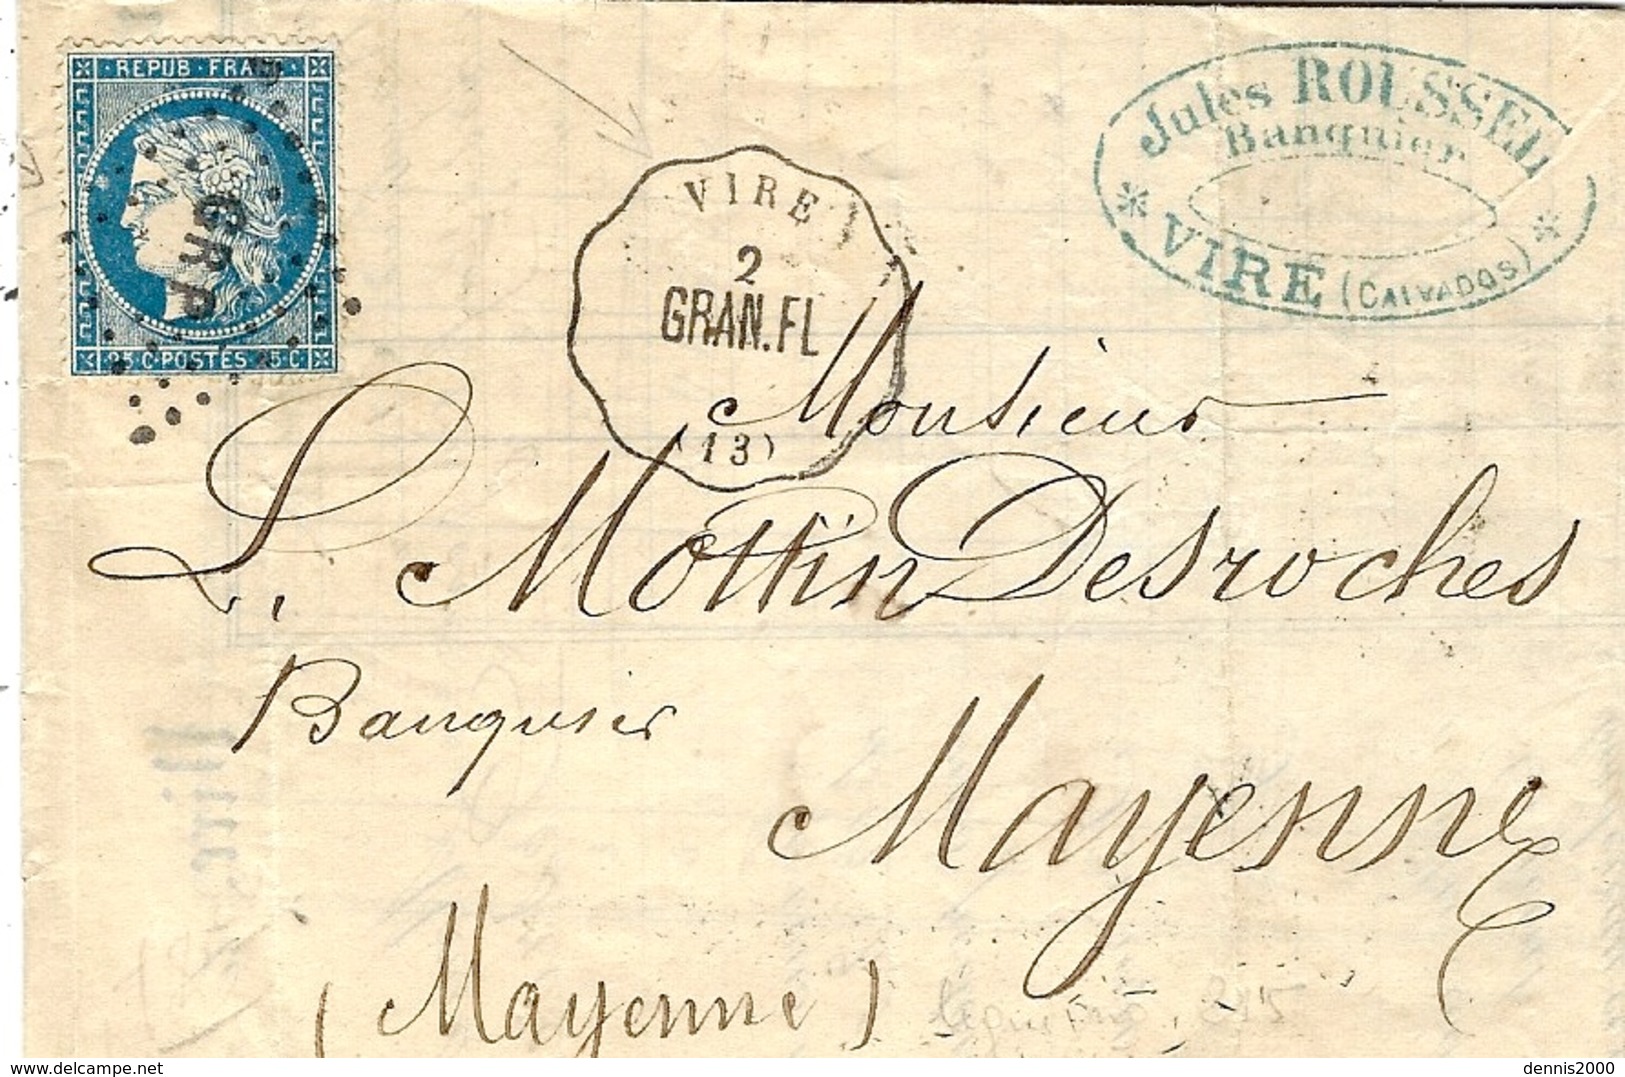 REPUB·FRANC
GRP
25 C·POSTES 25 C·
VIRE
2
GRAN.FL
(13)
Jules ROUSSEL
Banquier
* VIRE (CALVADOS) *
Monsieur
L. Mottin Desroches
Banquier
Mayenne
(Mayenne)
dennis2000